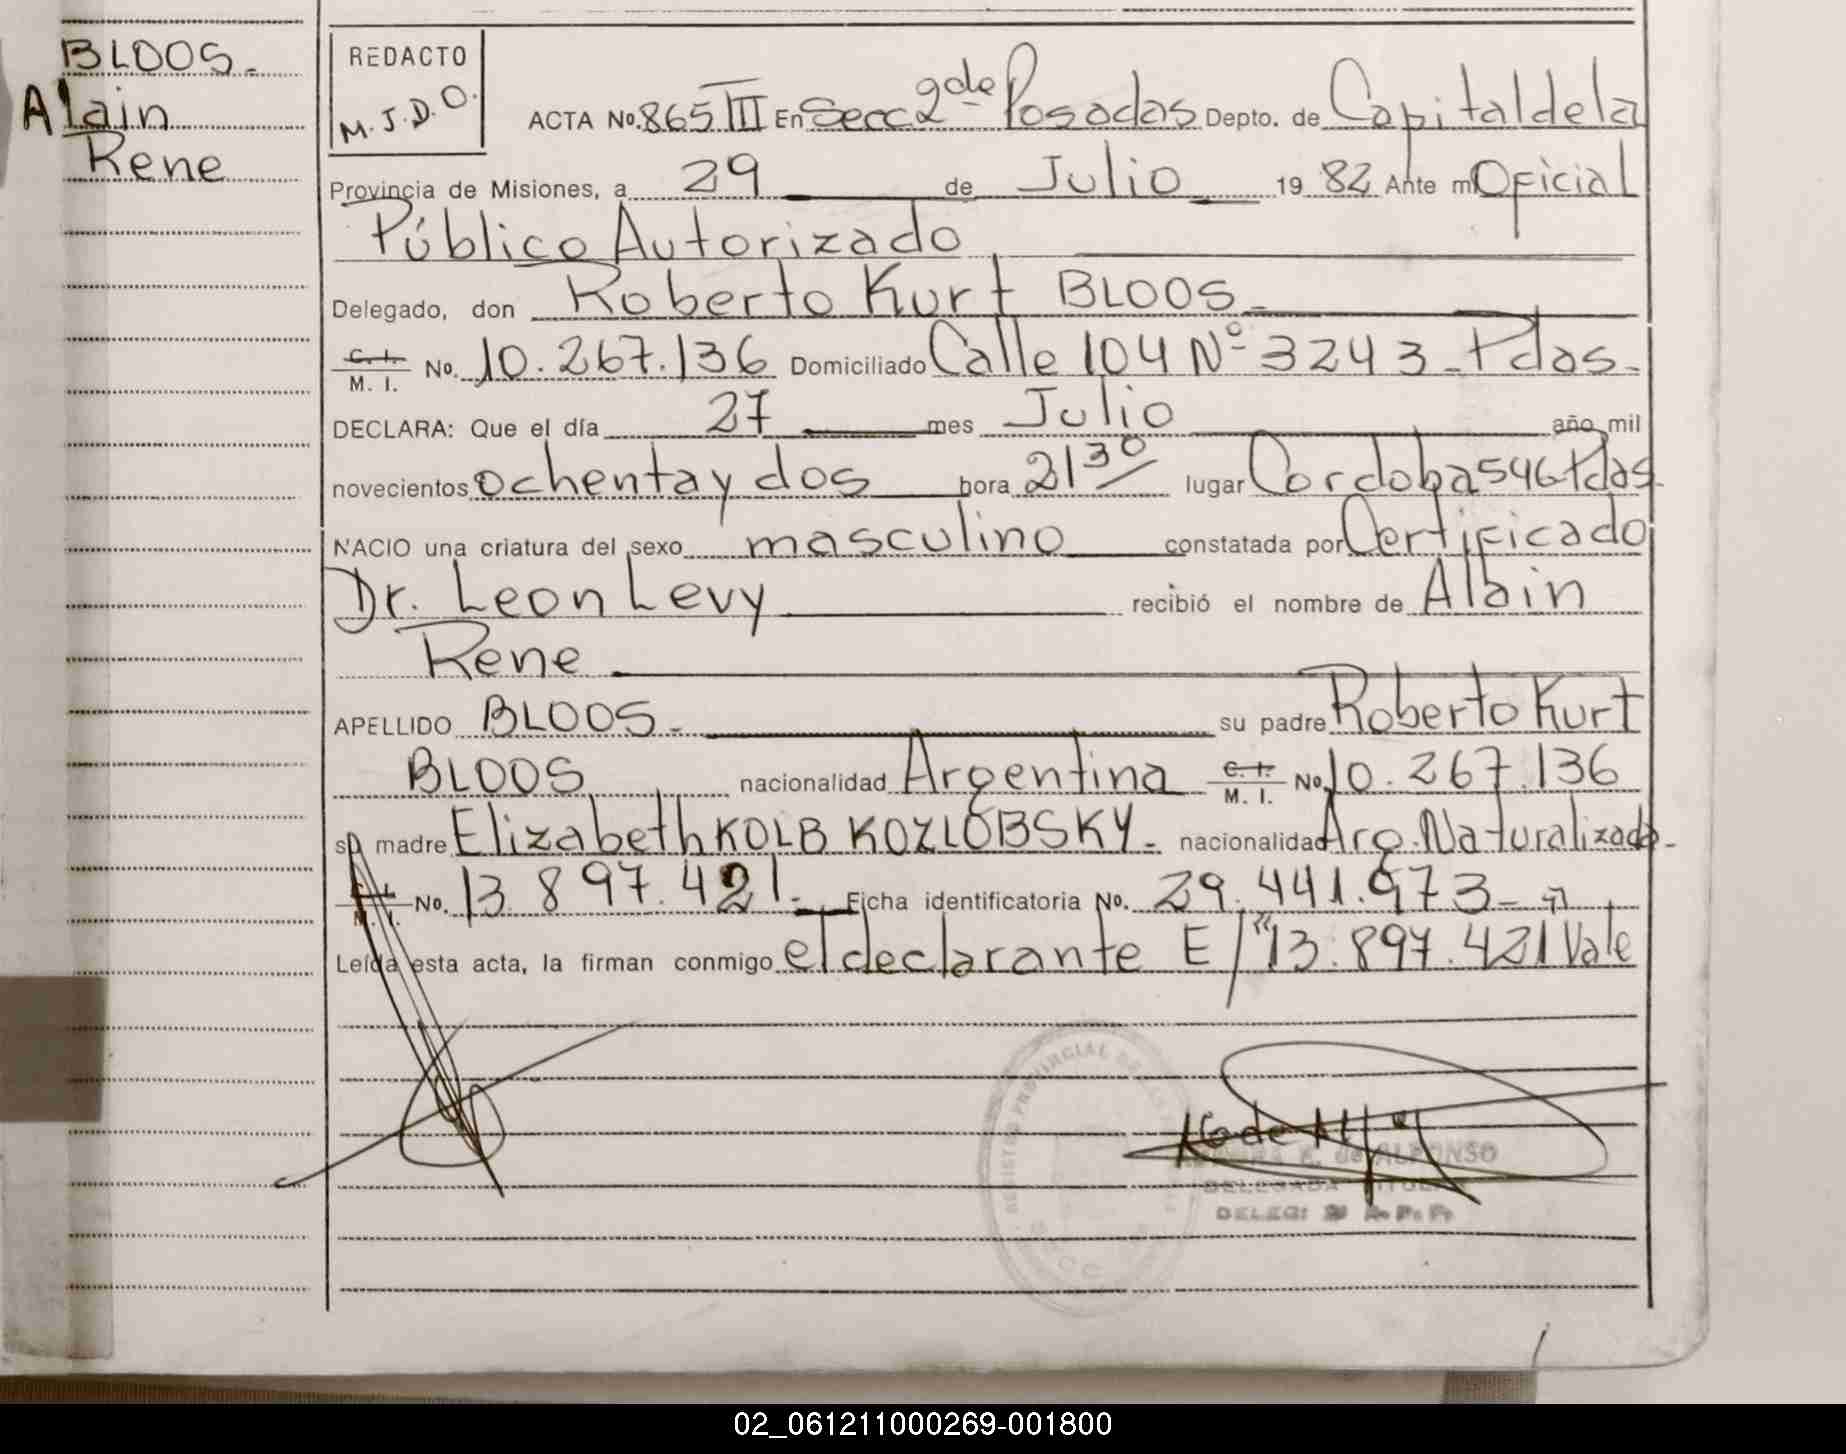 BLOOS.
Alain
Rene
REDACTO
M.J.D.O.
ACTA No. 865 III En Secc 2da de Posadas Depto. de Capital de la
Provincia de Misiones, a 29 de Julio 19 82 Ante mi Oficial
Público Autorizado
Delegado, don Roberto Kurt BLOOS
C. I. M. I. No. 10.267.136 Domiciliado Calle 104 Nº 3243 - Pdas.
DECLARA: Que el día 27 mes Julio año mil
novecientos ochenta y dos hora 21 30 lugar Cordoba 546 Pdas
NACIO una criatura del sexo masculino constatada por Certificado
Dr. Leon Levy recibió el nombre de Alain
Rene
APELLIDO BLOOS. su padre Roberto Kurt
BLOOS nacionalidad Argentina C. I. M. I. No. 10.267.136
su madre Elizabeth KOLB KOZLOBSKY. nacionalidad Arg. Naturalizada.
C. I. M. I. No. 13.897.421. Ficha identificatoria No. 29.441.973
Leída esta acta, la firman conmigo el declarante E/"13.897.421 Vale
REGISTRO PROVINCIAL DE LAS
de ALFONSO
DELEGADA TITULAR
02_061211000269-001800